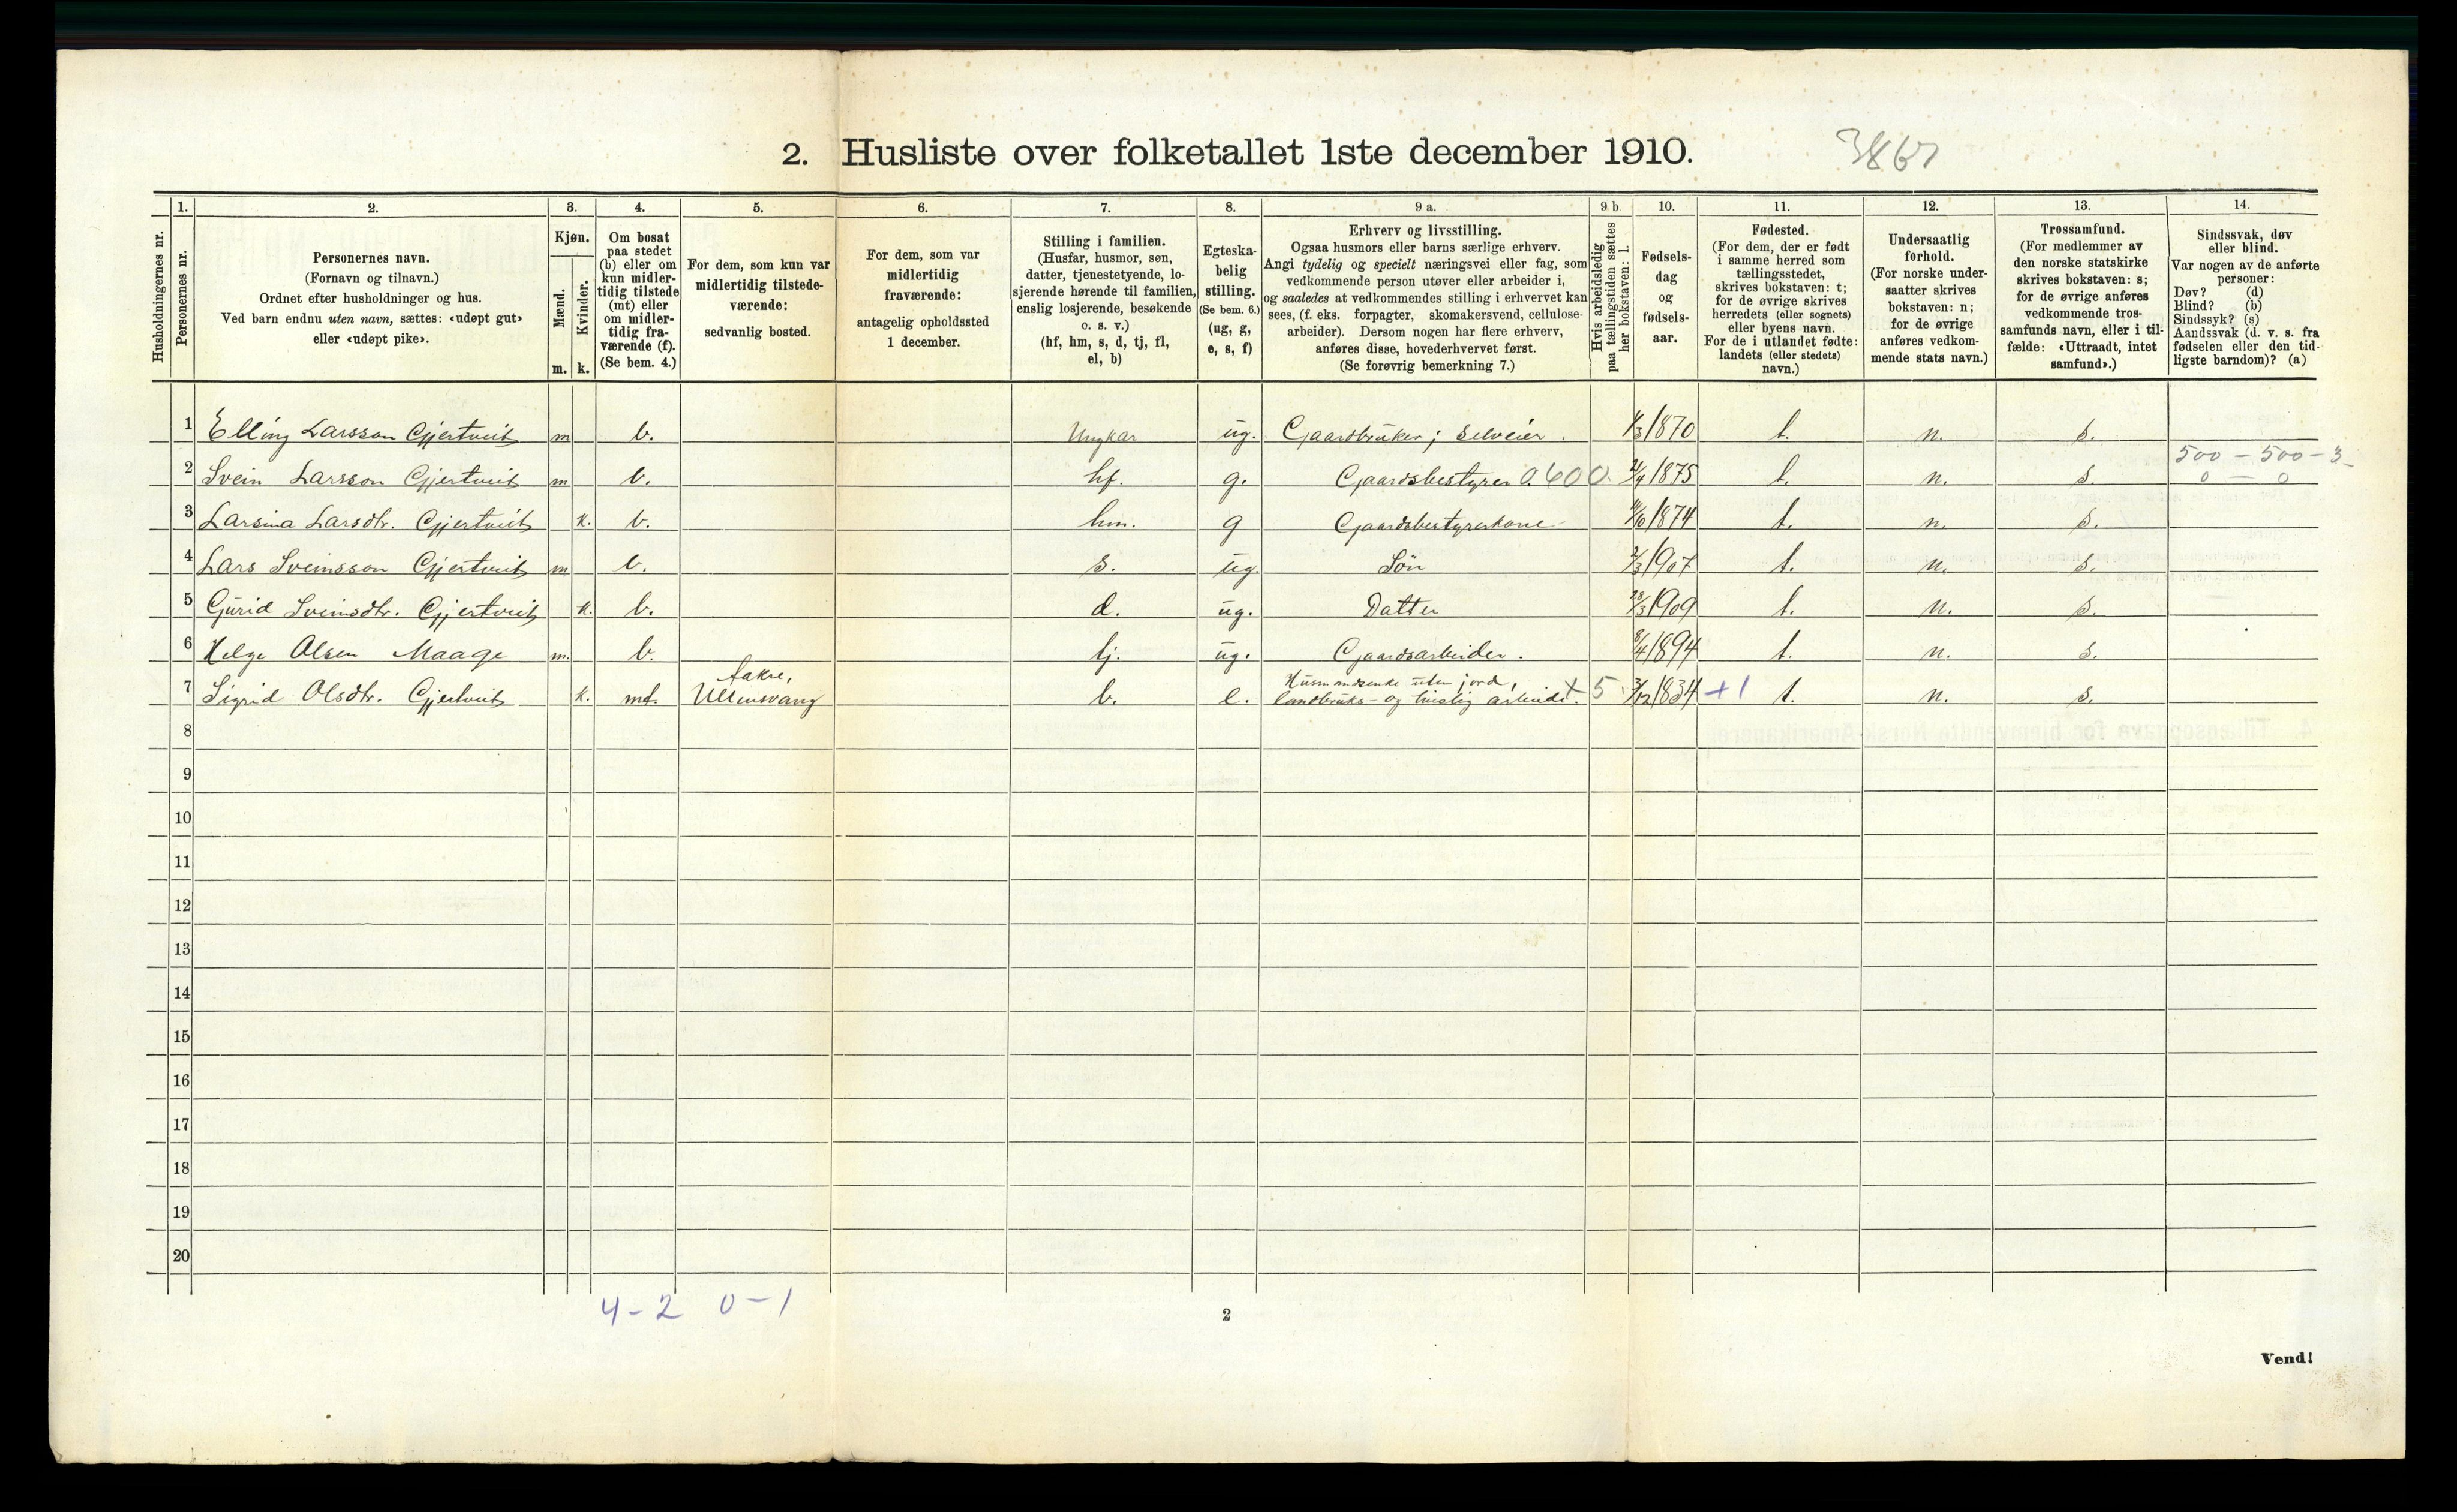 2. Husliste over folketallet 1ste december 1910.
Husholdningernes nr.
1.
Personernes nr.
2.
Personernes navn.
(Fornavn og tilnavn.)
Ordnet efter husholdninger og hus.
Ved barn endnu uten navn, sættes: «udøpt gut»
eller «udøpt pike».
3.
Kjøn.
Mænd.
Kvinder.
m. k.
4.
Om bosat
paa stedet
(b) eller om
kun midler-
tidig tilstede
(mt) eller
om midler-
tidig fra-
værende (f).
(Se bem. 4.)
5.
For dem, som kun var
midlertidig tilstede-
værende:
sedvanlig bosted.
6.
For dem, som var
midlertidig
fraværende:
antagelig opholdssted
1 december.
7.
Stilling i familien.
(Husfar, husmor, søn,
datter, tjenestetyende, lo-
sjerende hørende til familien,
enslig losjerende, besøkende
o. s. v.)
(hf, hm, s, d, tj, fl,
el, b)
8.
Egteska-
belig
stilling.
(Se bem. 6.)
(ug, g,
e, s, f)
9 a.
Erhverv og livsstilling.
Ogsaa husmors eller barns særlige erhverv.
Angi tydelig og specielt næringsvei eller fag, som
vedkommende person utøver eller arbeider i,
og saaledes at vedkommendes stilling i erhvervet kan
sees, (f. eks. forpagter, skomakersvend, cellulose-
arbeider). Dersom nogen har flere erhverv,
anføres disse, hovederhvervet først.
(Se forøvrig bemerkning 7.)
9 b
Hvis arbeidsledig
paa tællingstiden sættes
her bokstaven: l.
10.
Fødsels-
dag
og
fødsels-
aar.
11.
Fødested.
(For dem, der er født
i samme herred som
tællingsstedet,
skrives bokstaven: t;
for de øvrige skrives
herredets (eller sognets)
eller byens navn.
For de i utlandet fødte:
landets (eller stedets)
navn.)
12.
Undersaatlig
forhold.
(For norske under-
saatter skrives
bokstaven: n;
for de øvrige
anføres vedkom-
mende stats navn.)
13.
Trossamfund.
(For medlemmer av
den norske statskirke
skrives bokstaven: s;
for de øvrige anføres
vedkommende tros-
samfunds navn, eller i til-
fælde: «Uttraadt, intet
samfund».)
14.
Sindssvak, døv
eller blind.
Var nogen av de anførte
personer:
Døv? (d)
Blind? (b)
Sindssyk? (s)
Aandssvak (d. v. s. fra
fødselen eller den tid-
ligste barndom)? (a)
1 Elling Larsson Gjertveit m b. Ungkar ug. Gaardbruker; Selveier. 1/3 1870 t. n. s.
500 - 500 - 3
2 Svein Larsson Gjertveit m b. hf. g. Gaardsbestyrer 0.600. 21/4 1875 t. n. s. 0 - 0
3 Larsina Larsdtr. Gjertveit k. b. hm. g Gaardsbestyrerkone 1874 t. n. s.
4 Lars Sveinsson Gjertveit m b. s. ug. Søn 2/3 1907 t. n. s.
5 Gurid Sveinsdtr. Gjertveit k. b. d. ug. Datter 28/3 1909 t. n. s.
6 Helge Olsen Maage m. b. tj. ug. Gaardsarbeider. 8/4 1894 t. n. s.
Aakre, Husmandsenke uten jord,
7 Sigrid Olsdtr. Gjertveit k. mt. Ullensvang b. e. landbruks- og huslig arbeide. + 5 3/12 1834 +1 t. n. s.
8
9
10
11
12
13
14
15
16
17
18
19
20
4-2 0-1
2
Vend!